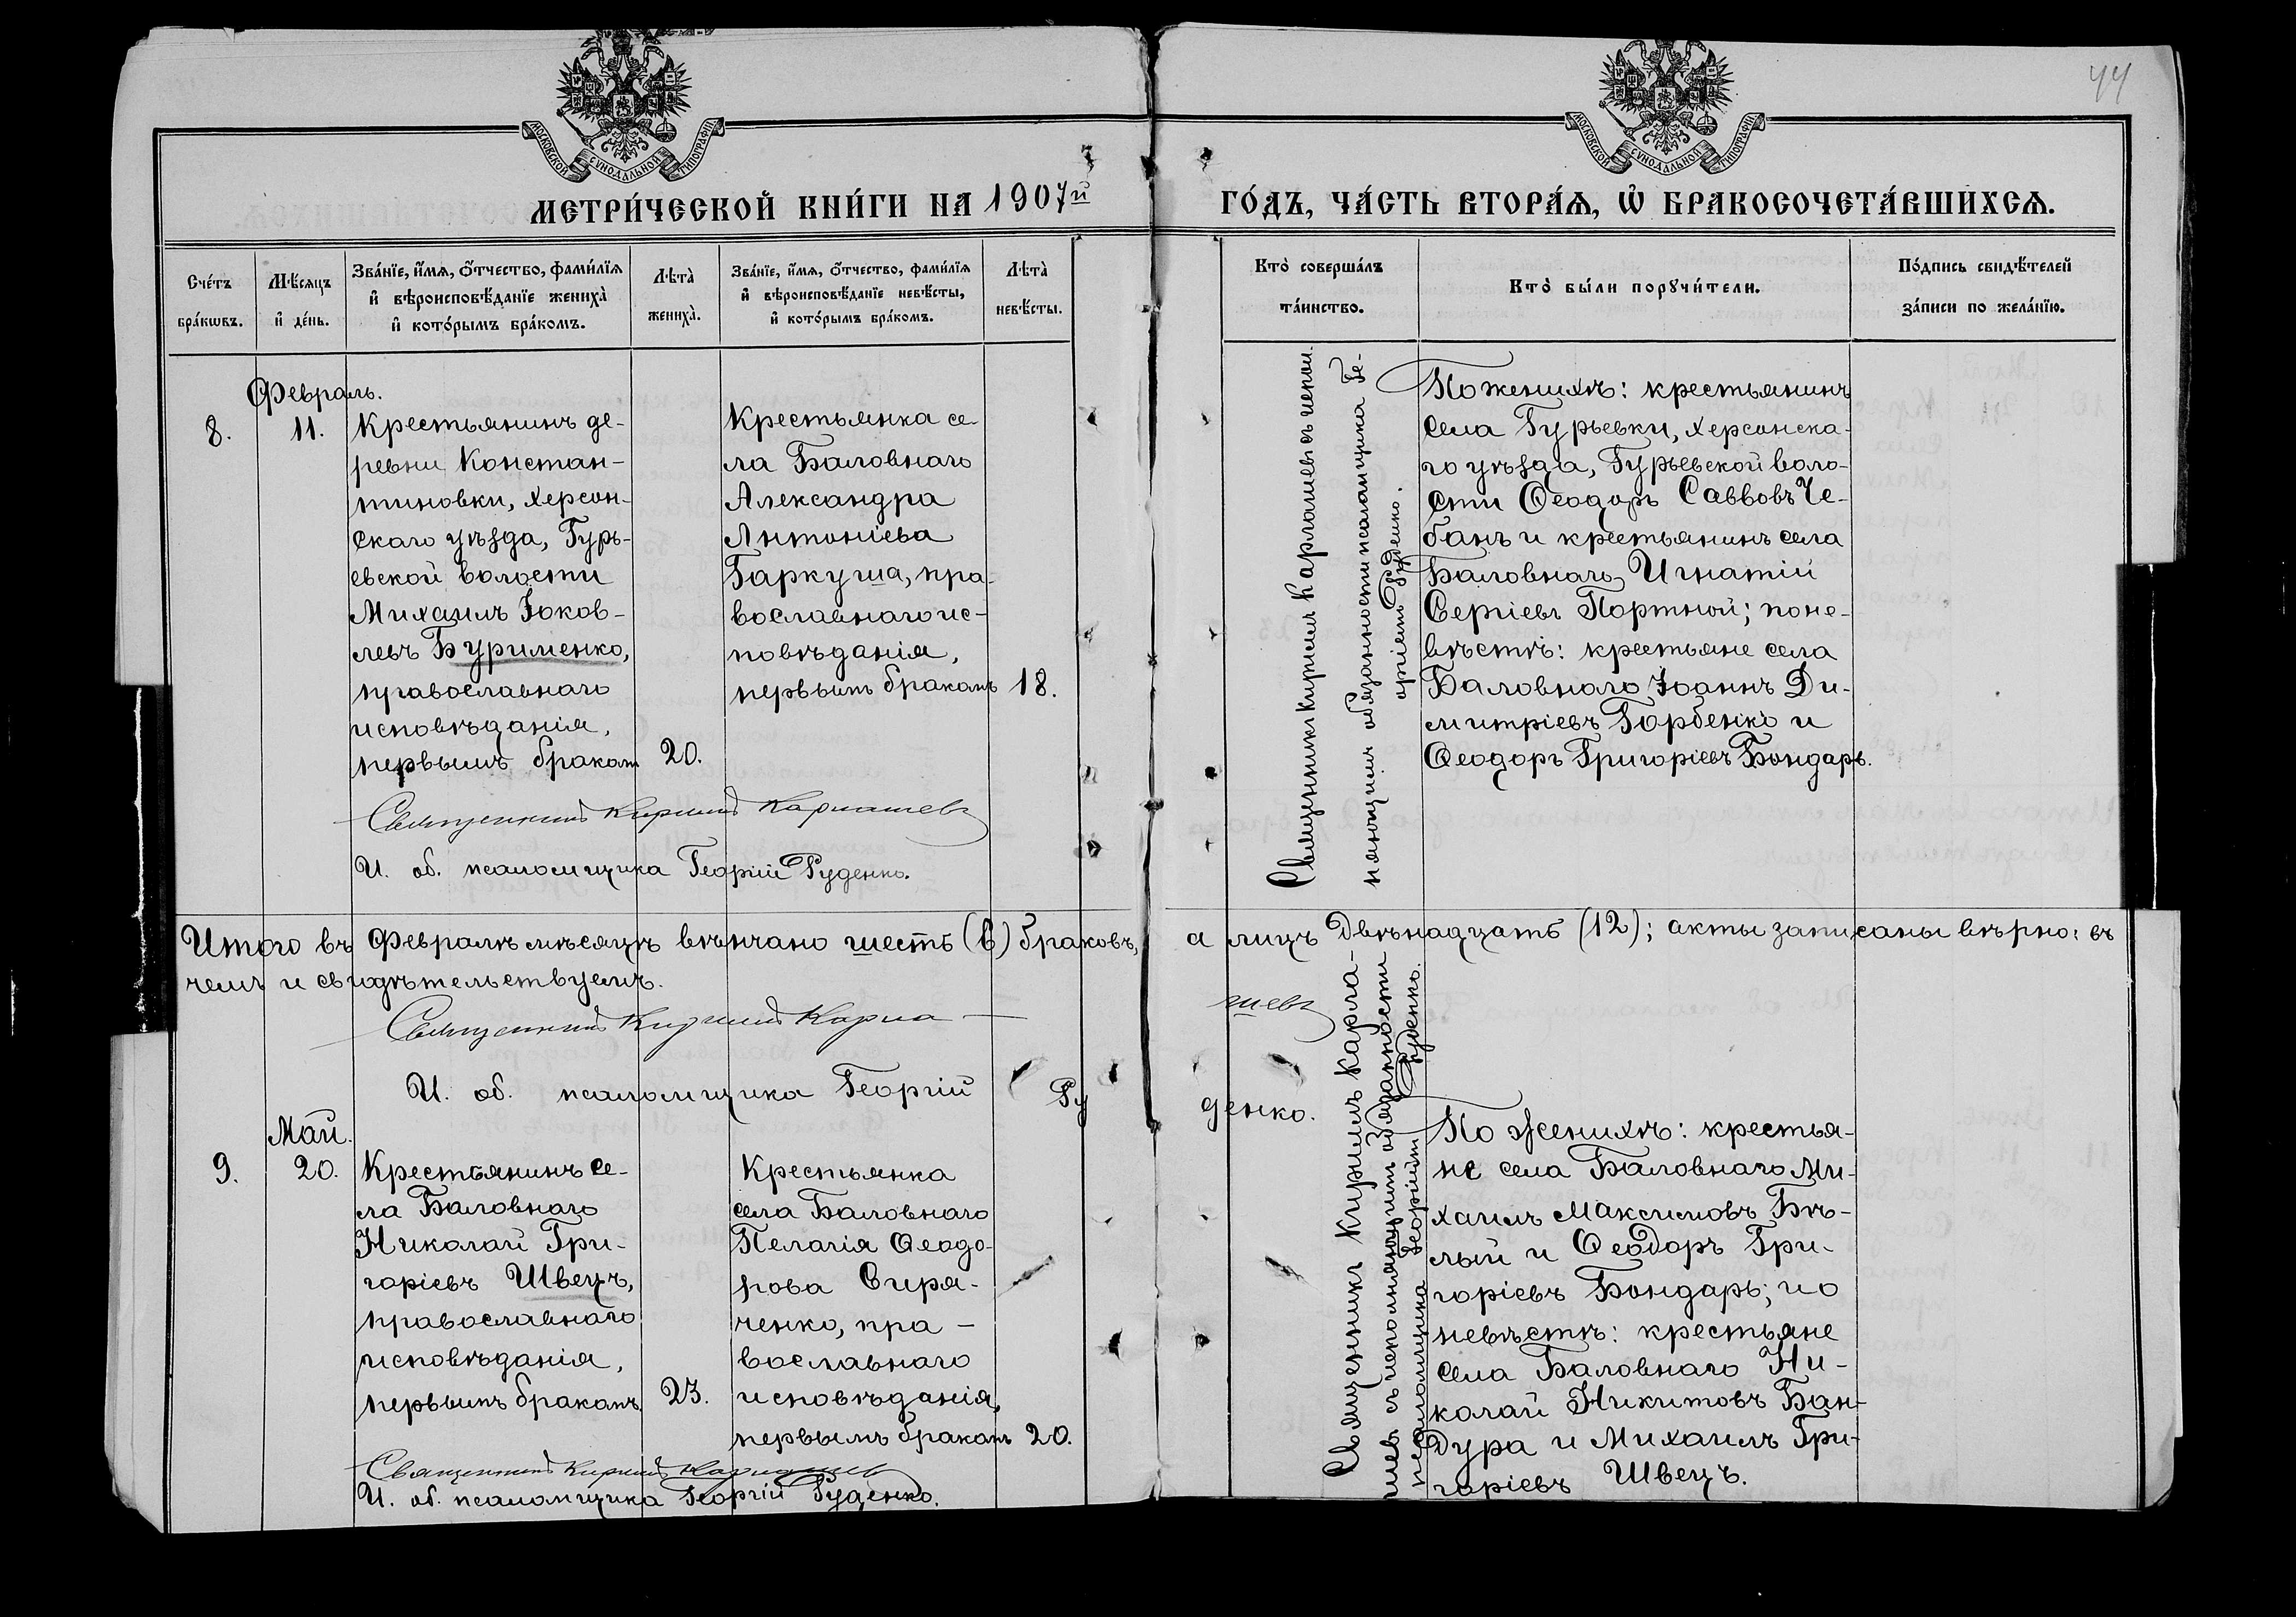 44
МОСКОВСКОЙ СѴНОДАЛЬНОЙ ТИПОГРАФІИ
МОСКОВСКОЙ СѴНОДАЛЬНОЙ ТИПОГРАФІИ
МЕТРИ́ЧЕСКОЙ КНИ́ГИ НА 1907й
ГО́ДЪ, ЧА́СТЬ ВТОРА́Я, Ѽ БРАКОСОЧЕТА́ВШИХСЯ.
Сче́тъ
бра́кѡвъ.
Мѣ́сяцъ
и҆ де́нь.
Зва́нїе, и҆́мя, ѻ҆́тчество, фами́лїя
и҆ вѣроисповѣ́данїе женихà
и҆ кото́рымъ бра́комъ.
Лѣтà
женихà.
Зва́нїе, и҆́мя, ѻ҆́тчество, фами́лїя
и҆ вѣроисповѣ́данїе невѣ́сты,
и҆ кото́рымъ бра́комъ.
Лѣтà
невѣ́сты.
Ктò соверша́лъ
та́инство.
Ктò бы́ли порꙋчи́тели.
По́дпись свидѣ́телей
за́писи по жела́нїю.
8.
Февраль.
11.
Крестьянинъ де-
ревни Констан-
тиновки, Херсон-
скаго уѣзда, Гурь-
евской волости
Михаилъ Іаков-
левъ Бурименко,
православнаго
исповѣданія,
первымъ бракомъ
20.
Крестьянка се-
ла Баловнаго
Александра
Антоніева
Гаркуша, пра-
вославнаго ис-
повѣданія,
первымъ бракомъ
18.
Священникъ Кирилъ Карлашевъ съ испол-
няющимъ обязанности псаломщика Ге-
оргіемъ Руденко.
По женихѣ: крестьянинъ
села Гурьевки, Херсонска-
го уѣзда, Гурьевской воло-
сти Ѳеодоръ Саввовъ Че-
банъ и крестьянинъ села
Баловнаго Игнатій
Сергіевъ Портной; по не-
вѣстѣ: крестьяне села
Баловнаго Іоаннъ Ди-
митріевъ Горбенко и
Ѳеодоръ Григоріевъ Бондарь.
Священникъ Кирилъ Карлашевъ
И. об. псаломщика Георгій Руденко.
Итого въ Февралѣ мѣсяцѣ вѣнчано шесть (6) браковъ, а лицъ двѣнадцать (12); акты записаны вѣрно: въ
чемъ и свидѣтельствуемъ.
Священникъ Кирилъ Карла- шевъ
И. об. псаломщика Георгій Ру денко.
9.
Май.
20.
Крестьянинъ се-
ла Баловнаго
Николай Гри-
горіевъ Швецъ,
православнаго
исповѣданія,
первымъ бракомъ.
23.
Крестьянка
села Баловнаго
Пелагія Ѳеодо-
рова Сиря-
ченко, пра-
вославнаго
исповѣданія,
первымъ бракомъ
20.
Священникъ Кирилъ Карла-
шевъ съ исполняющимъ обязанности
псаломщика Георгіемъ Руденко.
По женихѣ: крестья-
не села Баловнаго Ми-
хаилъ Максимовъ Бѣ-
лый и Ѳеодоръ Гри-
горіевъ Бондарь; по
невѣстѣ: крестьяне
села Баловнаго Ни-
колай Никитовъ Бан-
дура и Михаилъ Гри-
горіевъ Швецъ.
Священникъ Кирилъ Карлашев
И. об. псаломщика Георгій Руденко.